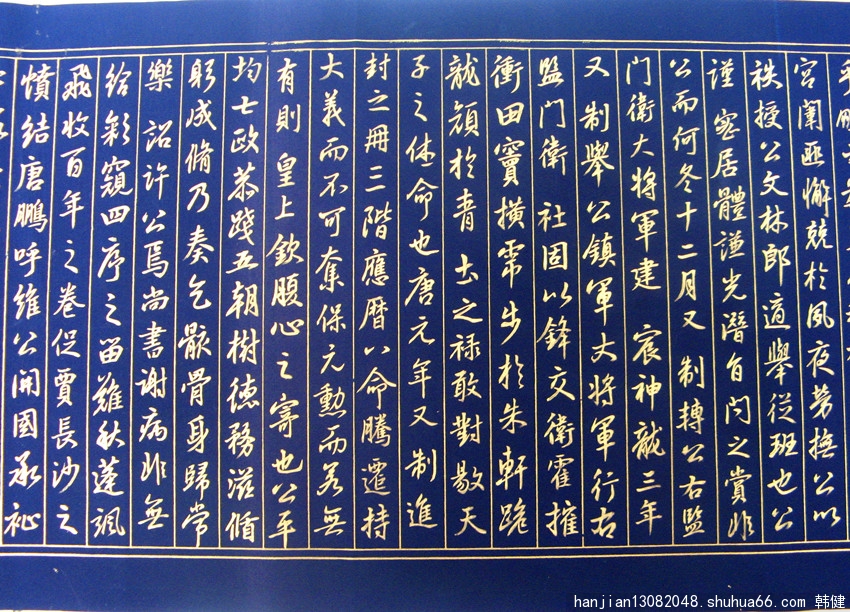 宮闈匪懈兢於夙夜勞撫公以
秩授公文林郎適舉從班也公
謹宓居體謙光潛自問之賞非
公而何冬十二月又 制轉公右監
門衛大將軍建 宸神龍三年
又制舉公鎮軍大將軍行右
監門衛 社固以鋒交衛霍擁
衝田竇橫帶步於朱軒跪
龍顏於青 土之祿敢對敭天
子之休命也唐元年又制進
封之冊三階應曆八命騰遷持
大義而不可奪保元勳而若無
有則 皇上欽腹心之寄也公平
均七政恭踐五朝樹德務滋脩
躬成脩乃奏乞骸骨身歸常
樂 詔許公焉尚書謝病非無
給彩窺四序之留難秋蓬颯
飛收百年之卷促賈長沙之
憤結唐鵬呼維公開國承祉
hanjian13082048.shuhua66.com 韩健